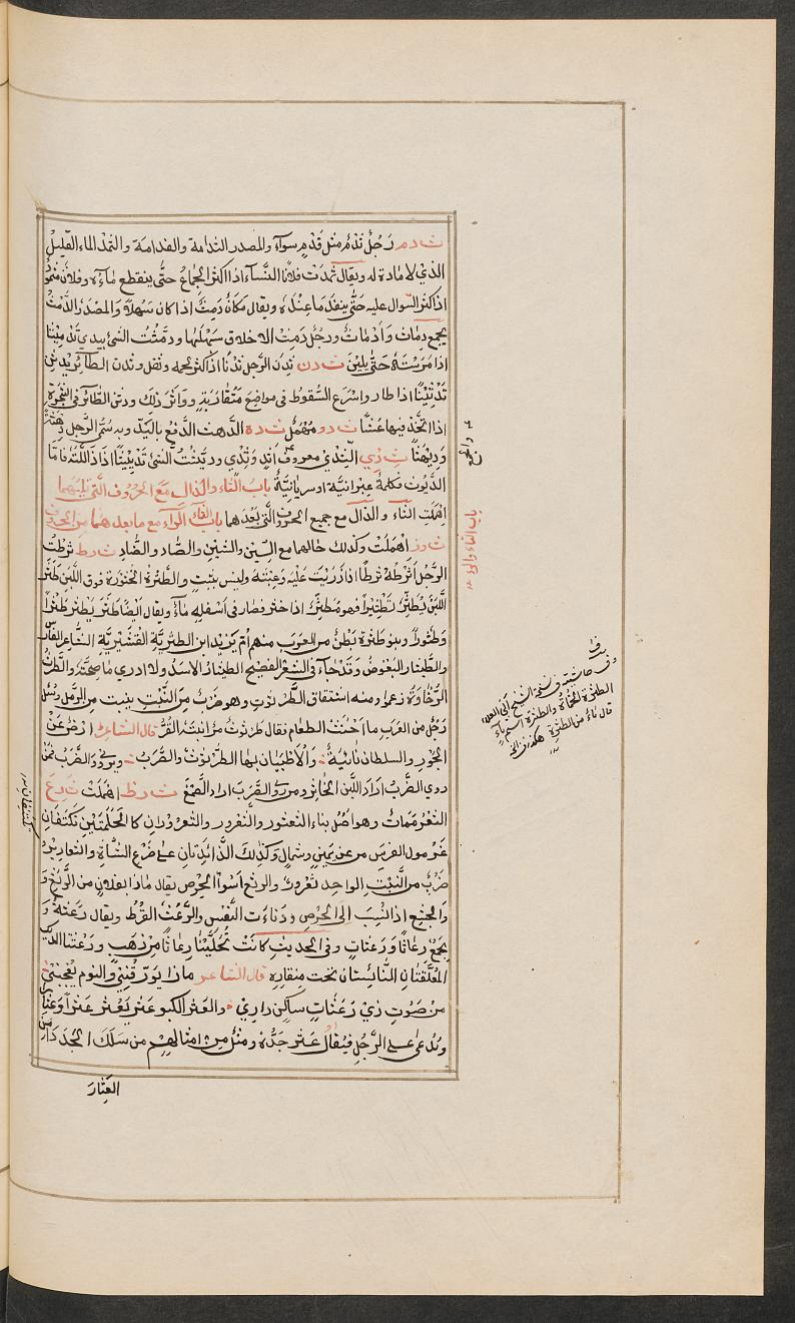 ث د م رَجُلٌ ثَدْمٌ مثل فَدْمٍ سواء والمصدر الثدامة والفدامة والثمد الماء القليل
الذي لا مادة له ويقال ثمدت فلانا النساء اذا اكثر الجماع حتى ينقطع ماءه وفلان مثمود
اذا كثر السوال عليه حتى ينفد ما عنده ويقال مكان دمث اذا كان سهلا والمصدر الدمث
يجمع دماث وادماث ورجل دمث الاخلاق سهلها ودمثت الشي بيدي تدميثا
اذا مرسته حتى يلين ث د ن ثدن الرجل ثدنا اذا كثر لحمه وثقل ودثن الطائر يدثن
تدثينا اذا طار واسرع السقوط في مواضع متقاربة وواتر ذلك ودثن الطائر في الشجرة
اذا اتخذ فيها عشا ث د و مهمل ث د ه الدهث الدفع باليد وبه سمى الرجل دهثة
ث د ي الثدي معروف اثد وثدي وديثت الشي تدييثا اذا ذللته فاما
الديوث فكلمة عبرانية او سريانية باب الثاء والذال مع الحروف التي تليهما
اهملت الثاء والذال مع جميع الحروف التي بعدهما باب الثاء الراء مع ما بعدهما من الحروف
ث ر ز اهملت وكذلك حالهما مع السين والشين والصاد والضاد ث ر ط ثرطت
الرجل اثرطه ثرطا اذا زريت عليه وعبته وليس بثبت والطثرة الخثورة فوق اللبن طثر
اللبن يطثر تطثيرا فهو مطثر اذا خثر فصار في اسفله ماء ويقال ايضا طثر يطثر طثرا
وطثورا وبنو طثرة بطن من العرب منهم ام يزيد ابن الطثرية القشيرية الشاعر
والطيثار البعوض وقد جاء في الشعر الفصيح الطيثار الاسد ولا ادري ما صحته والطرث
الرخاوة زعموا ومنه اشتقاق الطرثوث وهو ضرب من النبت ينبت من الرمل وسئل
رجل من العرب ما اخبث الطعام فقال طرثوث مر انبته القر قال الشاعر ارض عن
الخير والسلطان نائية والاطيبان بها الطرثوث والصرب ويروى الضرب فمن
روى الضرب اراد اللبن الخاثر ومن روى الصرب اراد الصمغ ث ر ظ اهملت ث ر ع
الثعر ممات وهو اصل بناء الثعثور والثعرور والثعروران كالحلمتين تكتنفان
غرمول الفرس من عن يمين وشمال وكذلك الزائدتان على ضرع الشاة والثعارير
ضرب من النبت الواحد ثعرور والرثع اسوأ الحرص يقال ماذا بفلان من الرثع و
والجشع اذا نسب الى الحرص ودناءت النفس والرعث القرط ويقال رعثة و
يجمع رعاثا ورعثات وفي الحديث كانت تحلينا رعاثا من ذهب ورعثتا الديك
المعلقتان النائستان تحت منقاره قال الشاعر ماذا يورقني والنوم يعجبني
من صوت ذي رعثات ساكن داري والعثر الكبو عثر يعثر عثرا وعثارا
ويدعى على الرجل فيقال عثر جده ومثل من امثالهم من سلك الجدد امن
العثار
باب الثاء والراء
وفي حاشية نسخة الشيخ ابي العلاء
الطثرة الحماة والطثرة اسم ماء
تكتنفان